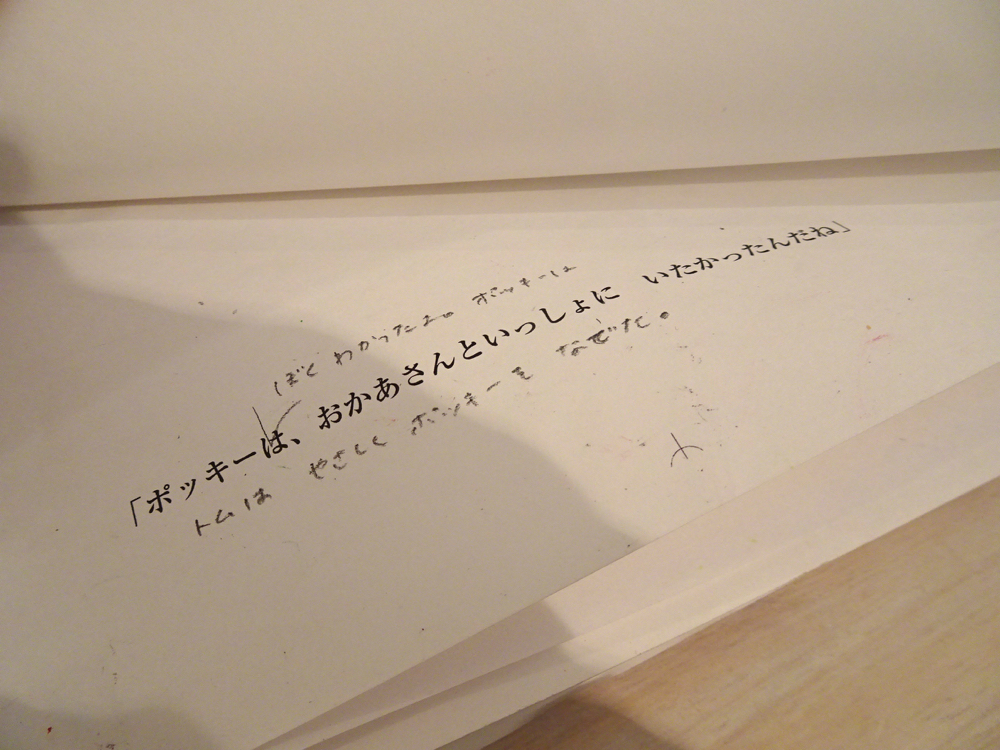 ぼく わかったよ。 ポッキーは
「ポッキーは、おかあさんといっしょに いたかったんだね」
トムは やさしく ポッキーを なでた。